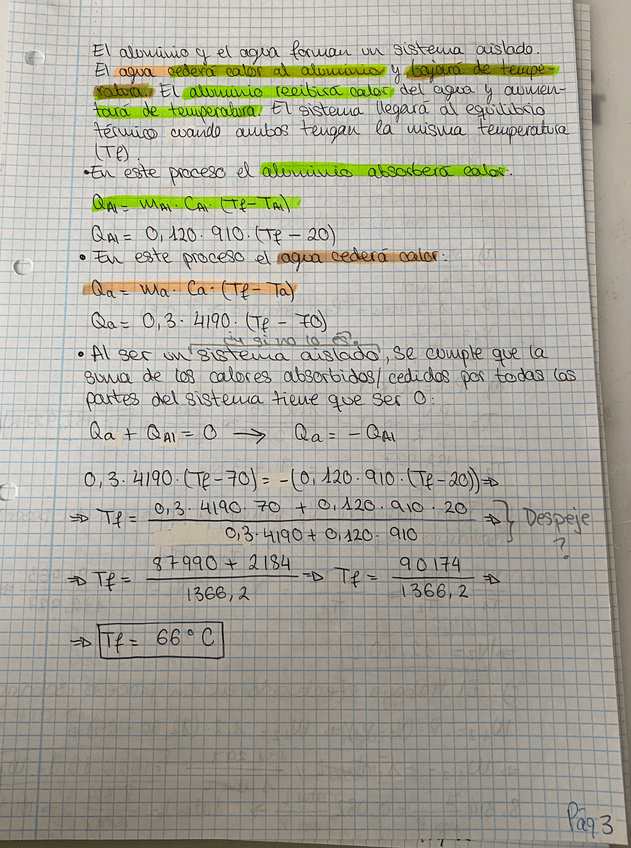 El aluminio y el agua forman un sistema aislado.
El agua cederá calor al aluminio y bajará de tempe-
ratura. El aluminio recibirá calor del agua y aumen-
tará de temperatura. El sistema llegará al equilibrio
térmico cuando ambos tengan la misma temperatura
(Tf).
• En este proceso el aluminio absorberá calor:
QAl = mAl · CAl · (Tf - TAl)
QAl = 0,120 · 910 · (Tf - 20)
• En este proceso el agua cederá calor:
Qa = ma · Ca · (Tf - Ta)
Qa = 0,3 · 4190 · (Tf - 70)
¿y si no lo es?
• Al ser un sistema aislado, se cumple que la
suma de los calores absorbidos/cedidos por todas las
partes del sistema tiene que ser 0:
Qa + QAl = 0 → Qa = - QAl
0,3 · 4190 · (Tf - 70) = -(0,120 · 910 · (Tf - 20)) ⇒
⇒ Tf = 0,3 · 4190 · 70 + 0,120 · 910 · 20 / 0,3 · 4190 + 0,120 · 910 ⇒ } Despeje
?
⇒ Tf = 87990 + 2184 / 1366,2 ⇒ Tf = 90174 / 1366,2 ⇒
⇒ Tf = 66°C
Pág 3